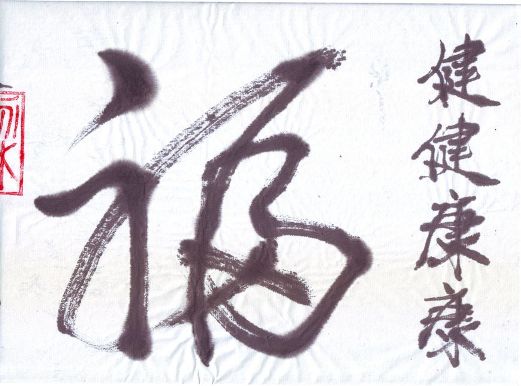 健健康康
福